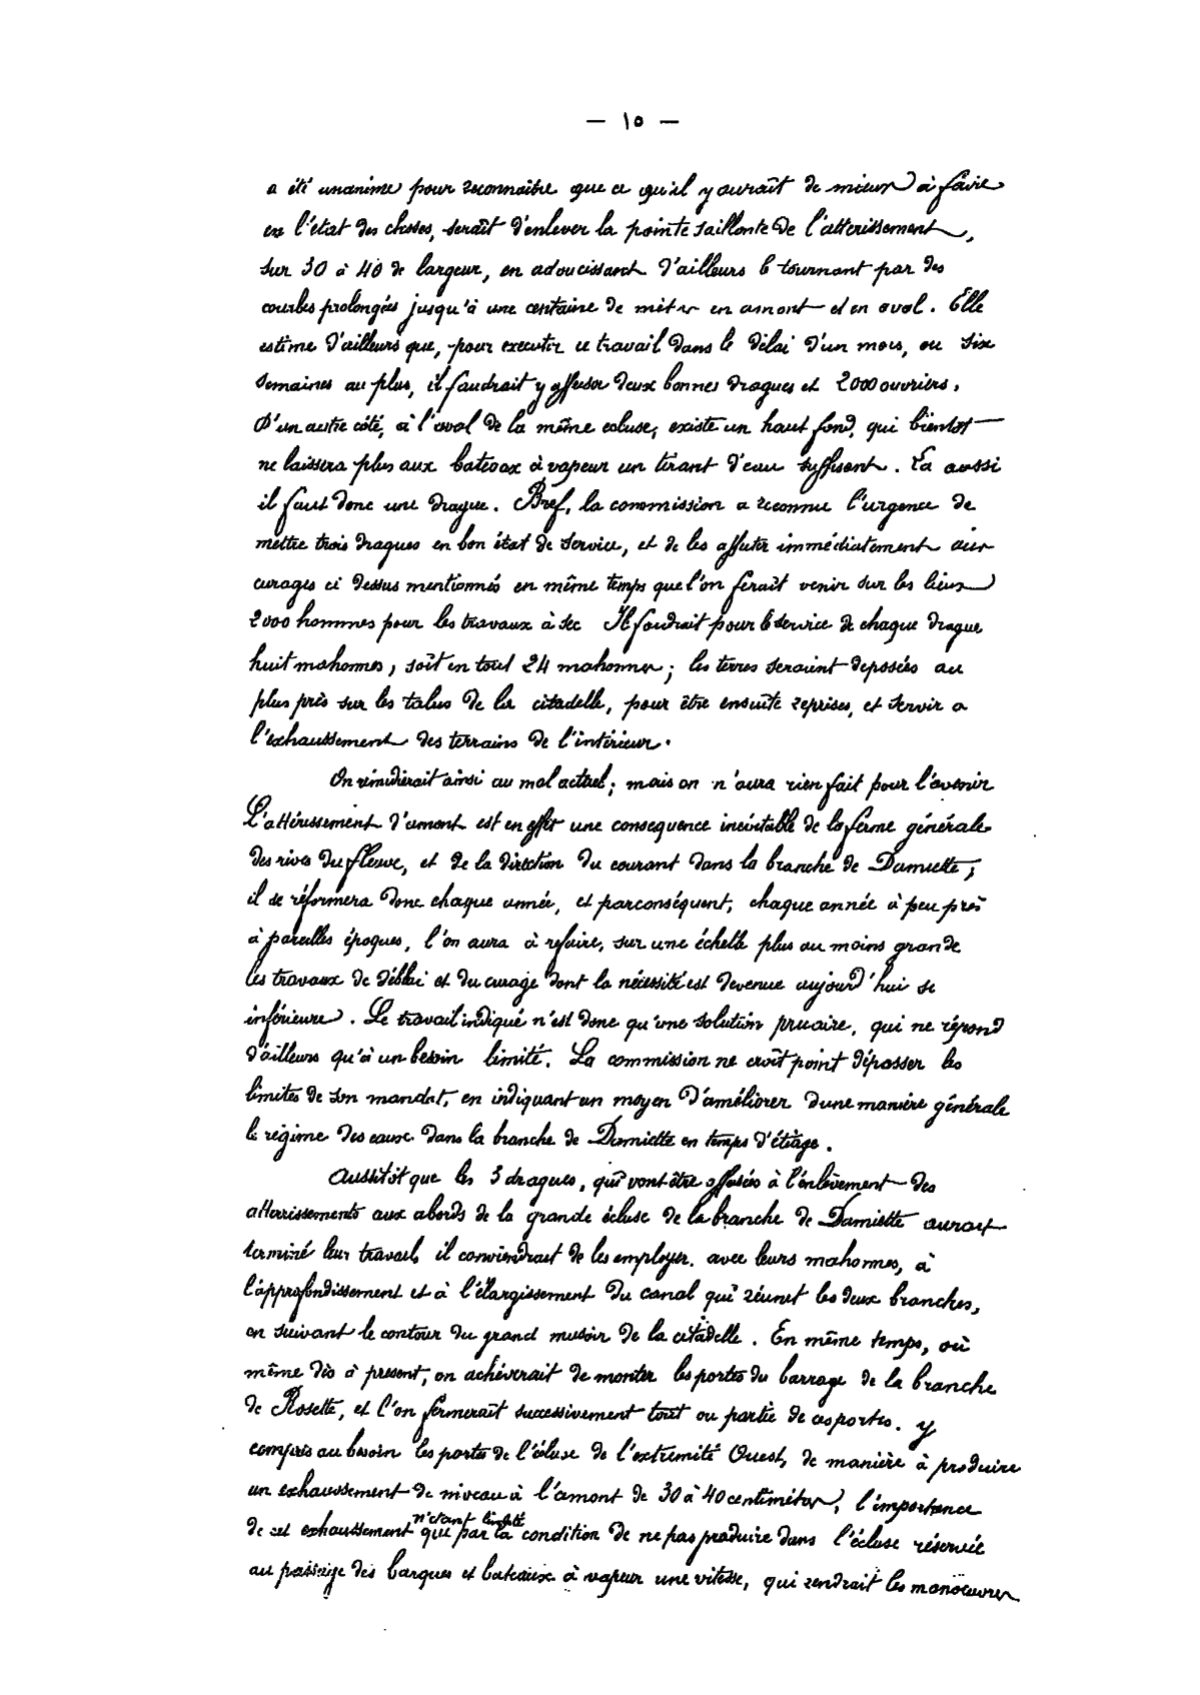 — ١٥ —
a été unanime pour reconnaître que ce qu'il y aurait de mieux à faire
en l'état des choses, serait d'enlever la pointe saillante de l'atterissement,
sur 30 à 40 de largeur, en adoucissant d'ailleurs le tournant par des
courbes prolongées jusqu'à une centaine de mètres en amont et en aval. Elle
estime d'ailleurs que, pour executer ce travail dans le délai d'un mois, ou six
semaines au plus, il faudrait y affecter deux bonnes dragues et 2000 ouvriers.
D'un autre côté, à l'aval de la même écluse, existe un haut fond, qui bientot
ne laissera plus aux bateaux à vapeur un tirant d'eau suffisent. Là aussi
il faut donc une drague. Bref, la commission a reconnu l'urgence de
mettre trois dragues en bon état de service, et de les affecter immédiatement aux
curages ci dessus mentionnés en même temps que l'on ferait venir sur les lieux
2000 hommes pour les travaux à sec Il faudrait pour le service de chaque drague
huit mahonnes, soit en tout 24 mahonnes; les terres seraient deposées au
plus près sur les talus de la citadelle, pour être ensuite reprises, et servir a
l'exhaussement des terrains de l'intérieur.
On rémédierait ainsi au mal actuel; mais on n'aura rien fait pour l'avenir
L'attérissement d'amont est en effet une consequence inévitable de la forme générale
des rives du fleuve, et de la direction du courant dans la branche de Damiette;
il se réformera donc chaque année, et parconséquent, chaque année à peu près
à pareilles époques, l'on aura à refaire, sur une échelle plus au moins grande
les travaux de déblai et du curage dont la nécessité est devenue aujourd'hui si
inférieure. Le travail indiqué n'est donc qu'une solution précaire, qui ne répond
d'ailleurs qu'à un besoin limité. La commission ne croit point dépasser les
limites de son mandat, en indiquant un moyen d'améliorer dune manière générale
le régime des eaux dans la branche de Damiette en temps d'étiage.
Aussitôt que les 3 dragues, qui vont être affectées à l'enlèvement des
atterrissements aux abords de la grande écluse de la branche de Damiette auront
terminé leur travail, il conviendrait de les employer. avec leurs mahonnes, à
l'approfondissement et à l'élargissement du canal qui réunit les deux branches,
en suivant le contour du grand musoir de la citadelle. En même temps, où
même dès à present, on achéverait de monter les portes du barrage de la branche
de Rosette, et l'on fermerait successivement tout ou partie de ces portes. y
compris au besoin les portes de l'écluse de l'extrémité Ouest, de manière à produire
un exhaussement de niveau à l'amont de 30 à 40 centimètres, l'importance
de cet exhaussement n'étant limité que par la condition de ne pas produire dans l'écluse réservée
au passage des barques et bateaux à vapeur une vitesse, qui rendrait les manoeuvres